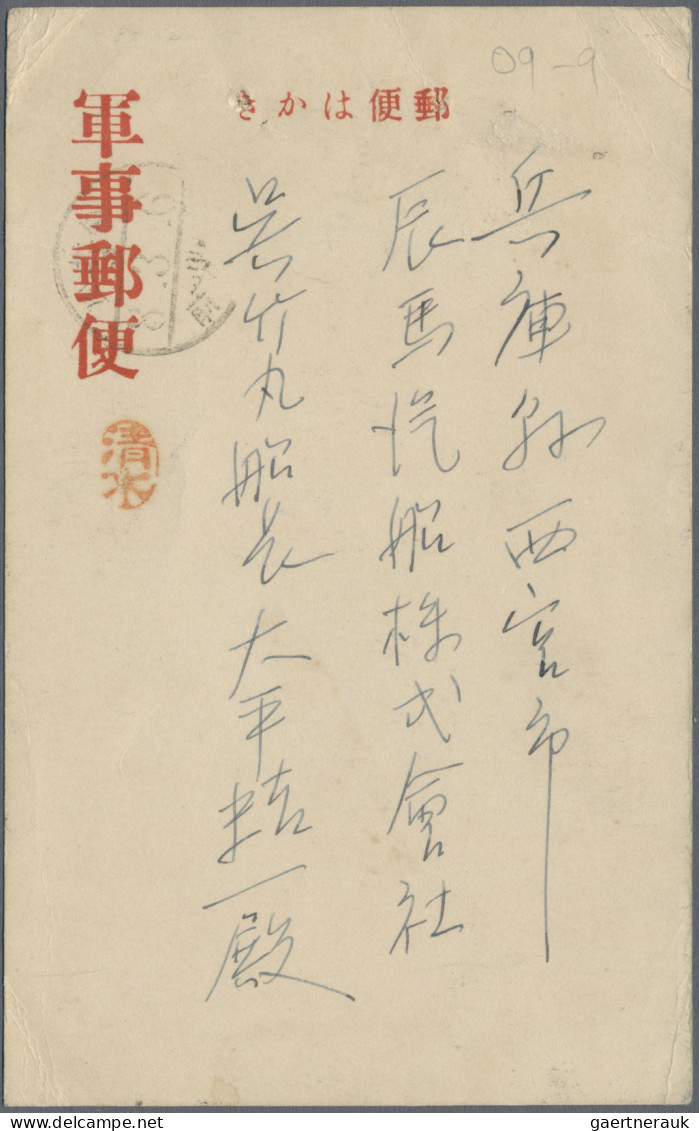 09-9
郵便はかき
兵庫縣西宮市
辰馬汽船株式會社
呉竹丸船長大平轄一殿
軍事郵便
清水
gaertnerauk